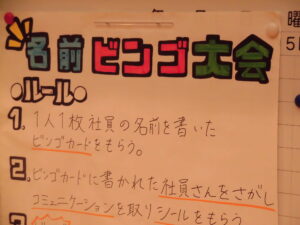 名前ビンゴ大会
●ルール●
1. 1人1枚社員の名前を書いた
ビンゴカードをもらう。
2. ビンゴカードに書かれた社員さんをさがし
コミュニケーションを取りシールをもらう